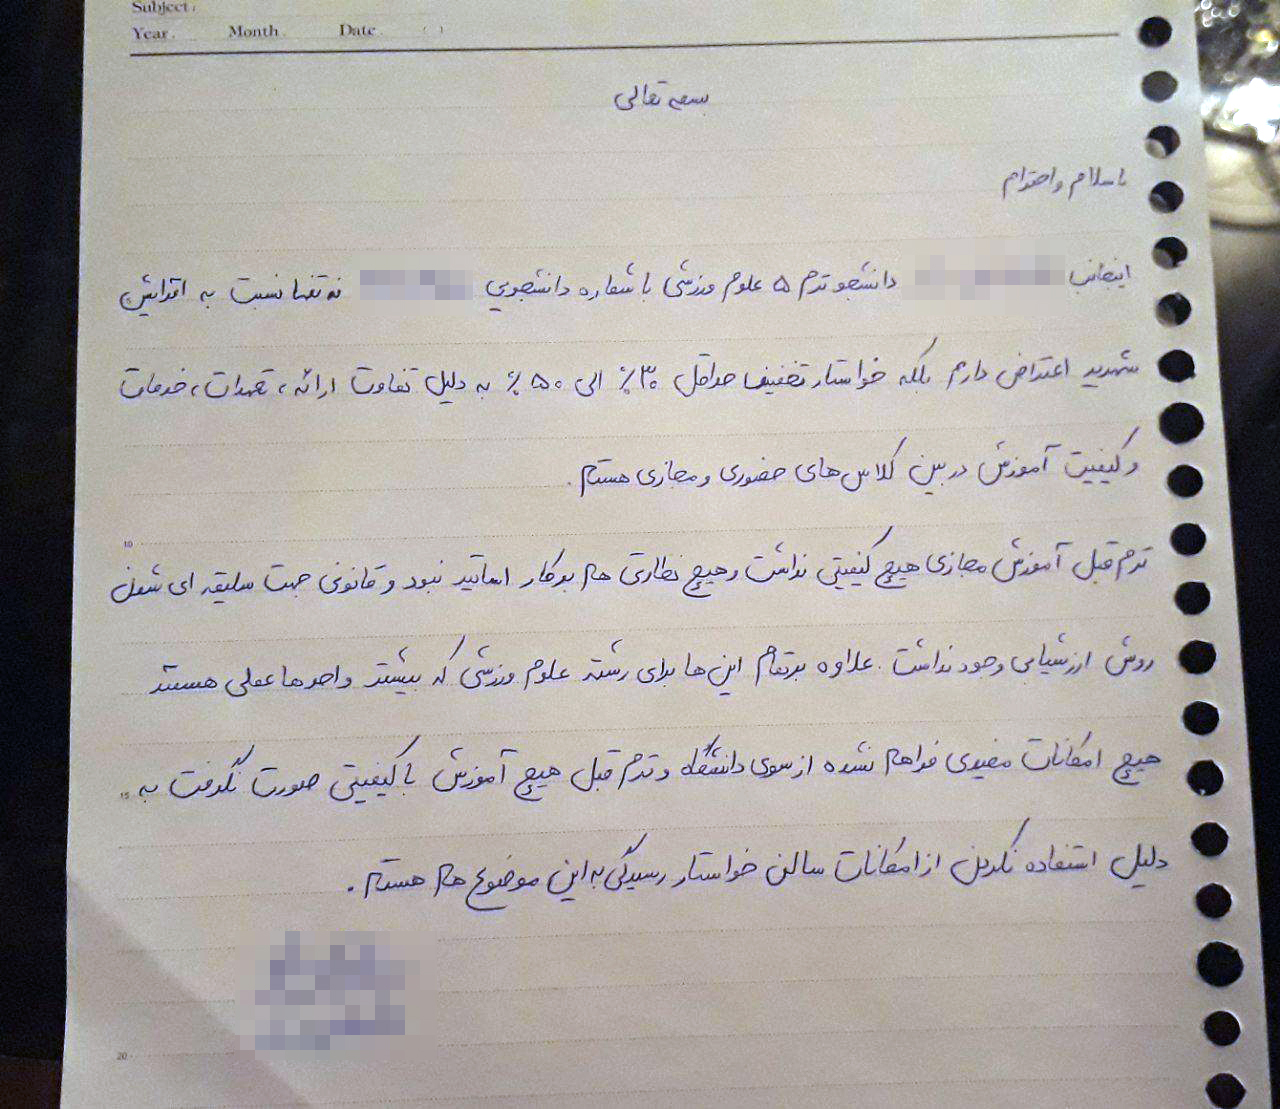 Subject:
Year. Month. Date. ( )
بسمه تعالی
با سلام و احترام
اینجانب دانشجو ترم ۵ علوم ورزشی با شماره دانشجویی نه تنها نسبت به افزایش
شهریه اعتراض دارم بلکه خواستار تخفیف حداقل ۳۰٪ الی ۵۰٪ به دلیل تفاوت ارائه، تعهدات، خدمات
و کیفیت آموزش در بین کلاس‌های حضوری و مجازی هستم.
10
ترم قبل آموزش مجازی هیچ کیفیتی نداشت و هیچ نظارتی هم بر کار اساتید نبود و قانونی جهت سلیقه ای شدن
روش ارزشیابی وجود نداشت. علاوه بر تمام این‌ها برای رشته علوم ورزشی که بیشتر واحدها عملی هستند
هیچ امکانات مفیدی فراهم نشده از سوی دانشگاه و ترم قبل هیچ آموزش با کیفیتی صورت نگرفت به
15
دلیل استفاده نکردن از امکانات سالن خواستار رسیدگی به این موضوع هم هستم.
20